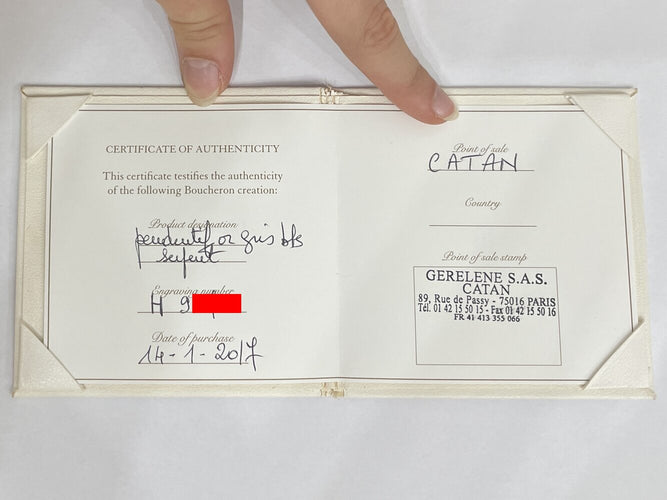 CERTIFICATE OF AUTHENTICITY
This certificate testifies the authenticity
of the following Boucheron creation:
Product designation
pendentif or gris bts
serpent
Engraving number
H 9
Date of purchase
14-1-2017
Point of sale
CATAN
Country
Point of sale stamp
GERELENE S.A.S.
CATAN
89, Rue de Passy - 75016 PARIS
Tél. 01 42 15 50 15 - Fax 01 42 15 50 16
FR 41 413 355 066